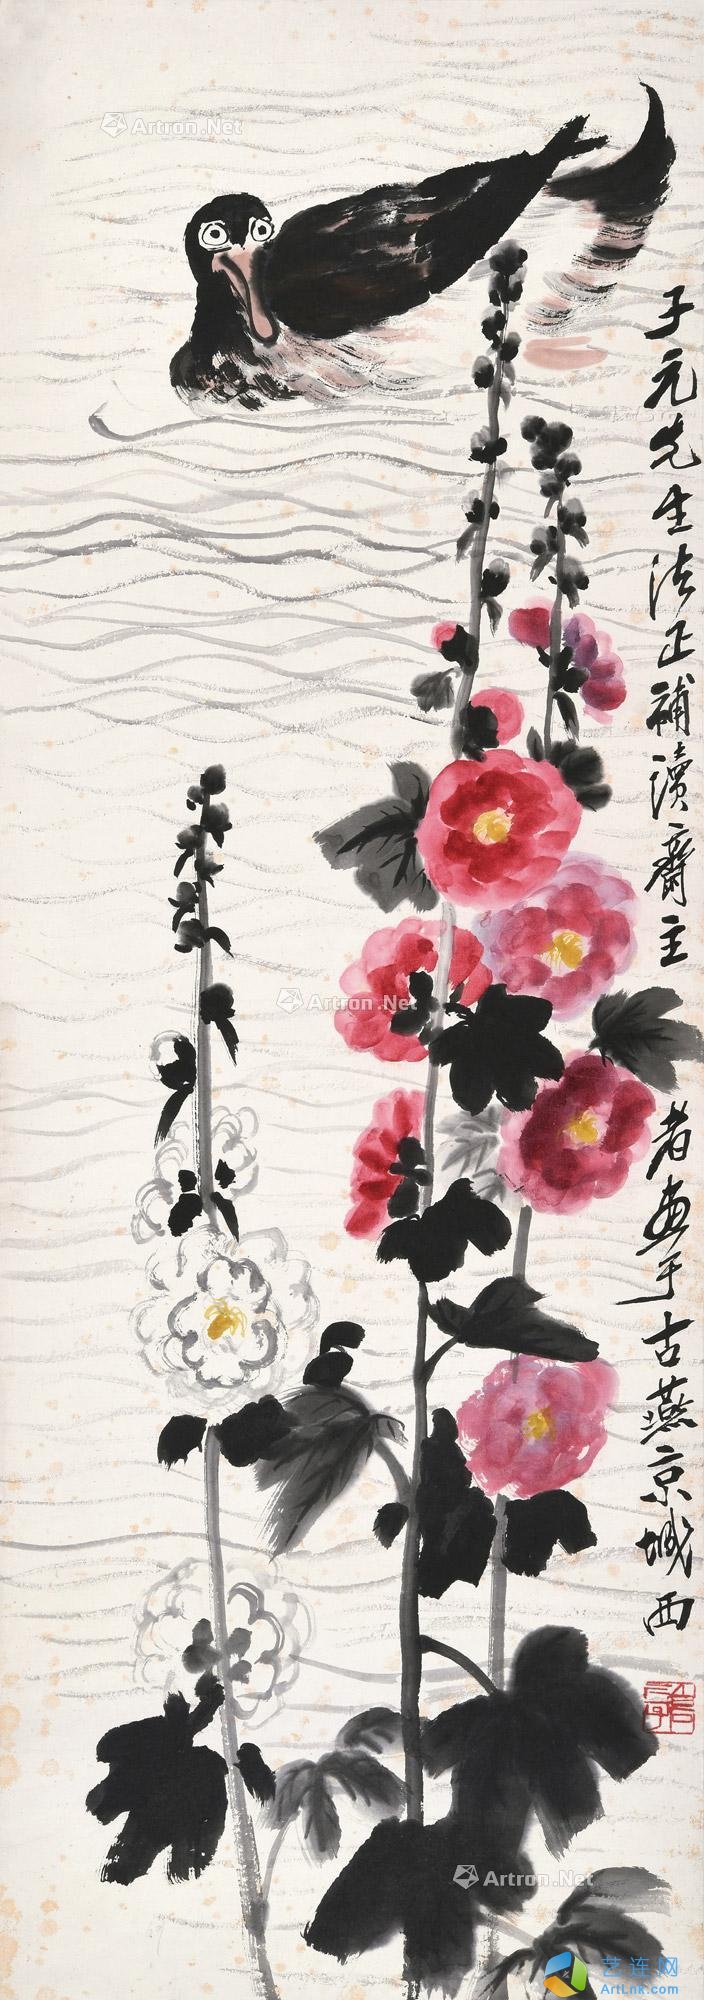 Artron.Net
子元先生法正補讀齋主
者畫于古燕京城西
Artron.Net
Artron.Net
艺连网
ArtLnk.com